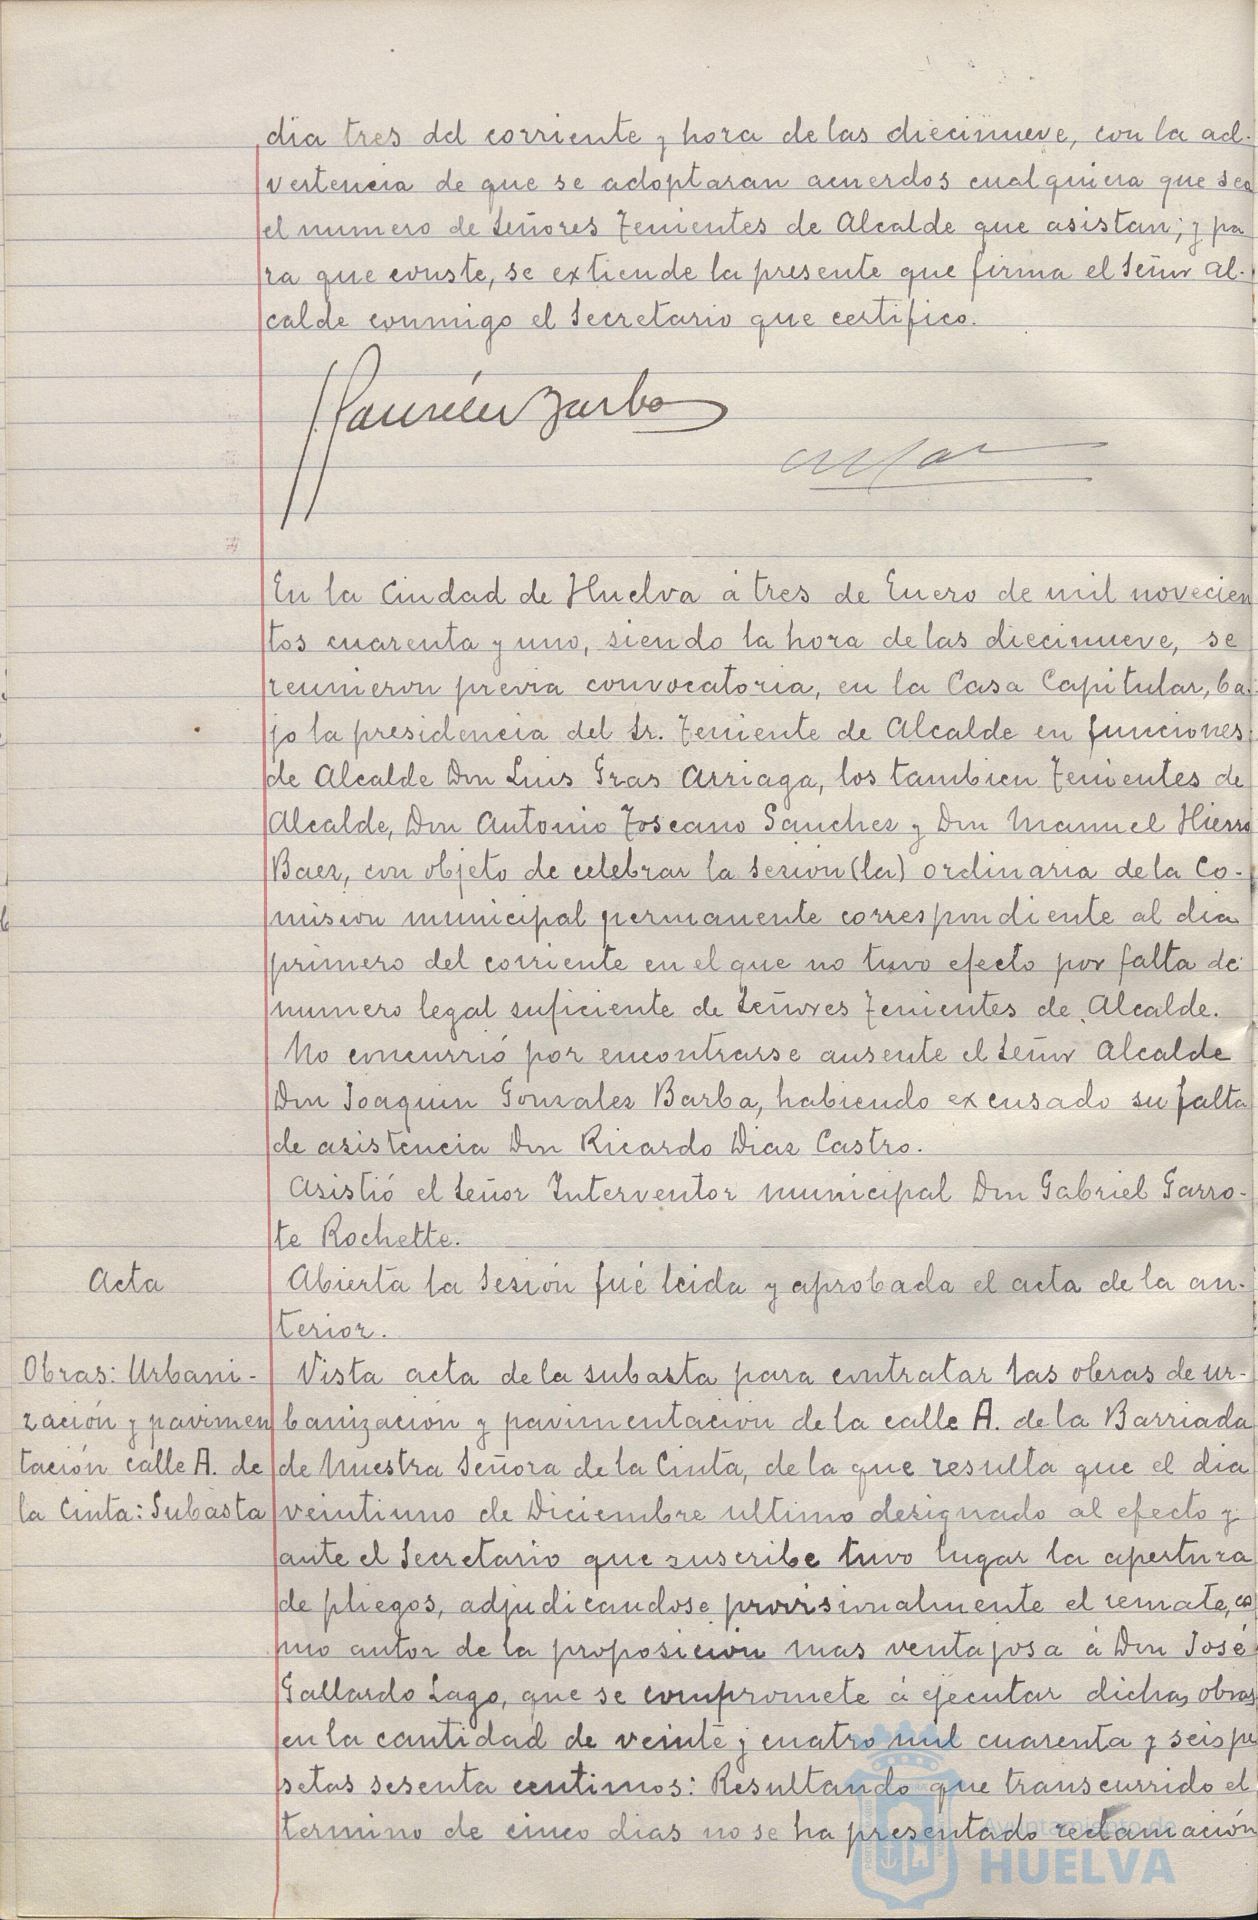 dia tres del corriente y hora de las diecinueve, con la ad-
vertencia de que se adoptaran acuerdos cualquiera que sea
el numero de Señores Tenientes de Alcalde que asistan; y pa
ra que conste, se extiende la presente que firma el Señor Al-
calde conmigo el Secretario que certifico.
En la Ciudad de Huelva á tres de Enero de mil novecien
tos cuarenta y uno, siendo la hora de las diecinueve, se
reunieron previa convocatoria, en la Casa Capitular, ba-
jo la presidencia del Sr. Teniente de Alcalde en funciones
de Alcalde Don Luis Gras Arriaga, los tambien Tenientes de
Alcalde, Don Antonio Toscano Sanchez y Don Manuel Hierro
Baez, con objeto de celebrar la sesion (la) ordinaria de la Co-
mision municipal permanente correspondiente al dia
primero del corriente en el que no tuvo efecto por falta de
numero legal suficiente de Señores Tenientes de Alcalde.
No concurrió por encontrarse ausente el Señor Alcalde
Don Joaquin Gonzalez Barba, habiendo excusado su falta
de asistencia Don Ricardo Diaz Castro.
Asistió el Señor Interventor municipal Don Gabriel Garro-
te Rochette.
Acta
Abierta la Sesión fué leida y aprobada el acta de la an-
terior.
Obras: Urbani-
zación y pavimen
tación calle A. de
la Cinta: Subasta
Vista acta de la subasta para contratar las obras de ur-
banización y pavimentación de la calle A. de la Barriada
de Nuestra Señora de la Cinta, de la que resulta que el dia
veintiuno de Diciembre ultimo designado al efecto y
ante el Secretario que suscribe tuvo lugar la apertura
de pliegos, adjudicandose provisionalmente el remate, co
mo autor de la proposición mas ventajosa á Don José
Gallardo Lago, que se compromete á ejecutar dichas obras
en la cantidad de veinte y cuatro mil cuarenta y seis pe
setas sesenta centimos: Resultando que transcurrido el
termino de cinco dias no se ha presentado reclamación
Ayuntamiento de
HUELVA